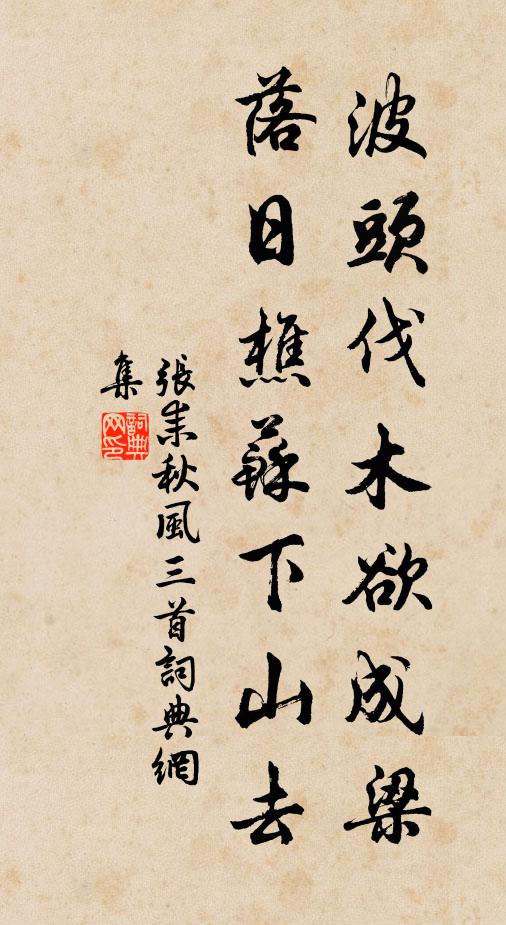 波頭伐木欲成梁
落日樵蘇下山去
張耒秋風三首詞典網
集
詞典
网印